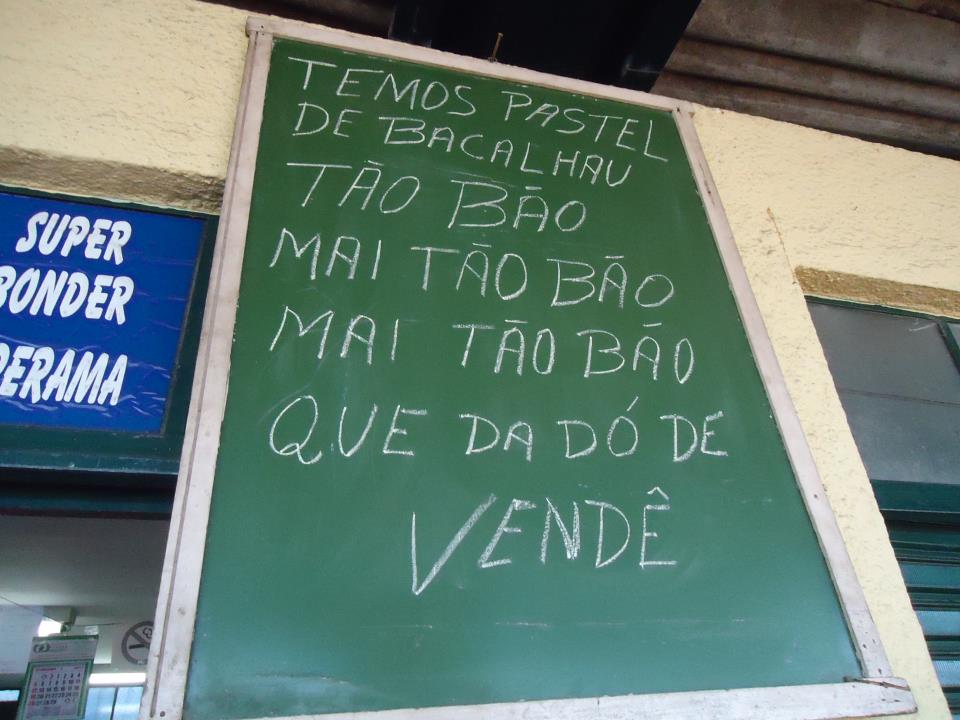 TEMOS PASTEL
DE BACALHAU
TÃO BÃO
MAI TÃO BÃO
MAI TÃO BÃO
QUE DA DÓ DE
VENDÊ
SUPER
BONDER